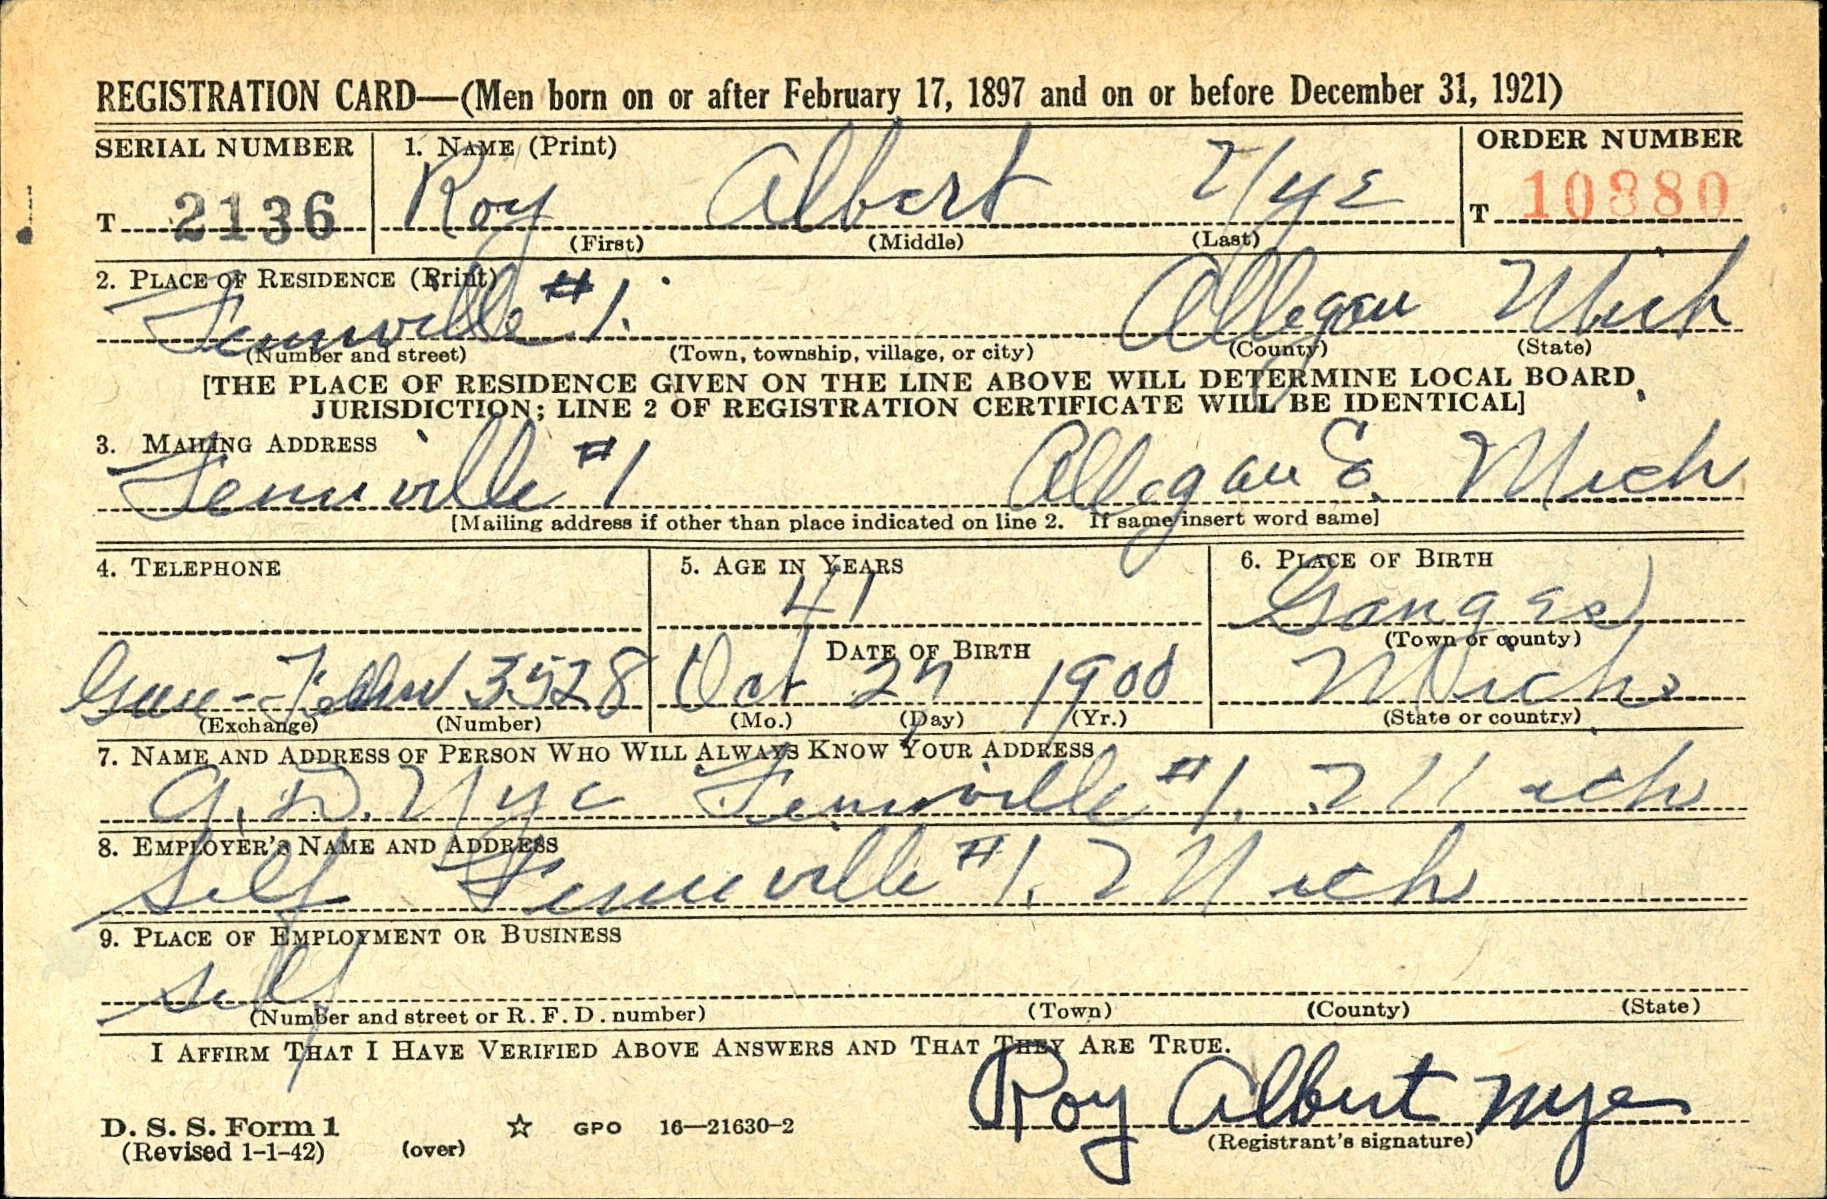 REGISTRATION CARD—(Men born on or after February 17, 1897 and on or before December 31, 1921)
SERIAL NUMBER 1. NAME (Print) ORDER NUMBER
T 2136 Roy Albert Nye T 10880
(First) (Middle) (Last)
2. PLACE OF RESIDENCE (Print)
Fennville #1. Allegan Mich
(Number and street) (Town, township, village, or city) (County) (State)
[THE PLACE OF RESIDENCE GIVEN ON THE LINE ABOVE WILL DETERMINE LOCAL BOARD
JURISDICTION; LINE 2 OF REGISTRATION CERTIFICATE WILL BE IDENTICAL]
3. MAILING ADDRESS
Fennville #1 Allegan Mich
[Mailing address if other than place indicated on line 2. If same insert word same]
4. TELEPHONE 5. AGE IN YEARS 6. PLACE OF BIRTH
41 Ganges
DATE OF BIRTH (Town or county)
3528 Oct 27 1900 Mich.
(Exchange) (Number) (Mo.) (Day) (Yr.) (State or country)
7. NAME AND ADDRESS OF PERSON WHO WILL ALWAYS KNOW YOUR ADDRESS
A. D. Nye Fennville #1. Mich
8. EMPLOYER'S NAME AND ADDRESS
Self Fennville #1. Mich
9. PLACE OF EMPLOYMENT OR BUSINESS
Self
(Number and street or R. F. D. number) (Town) (County) (State)
I AFFIRM THAT I HAVE VERIFIED ABOVE ANSWERS AND THAT THEY ARE TRUE.
Roy Albert Nye
D. S. S. Form 1 ☆ GPO 16—21630-2
(Revised 1-1-42) (over) (Registrant's signature)